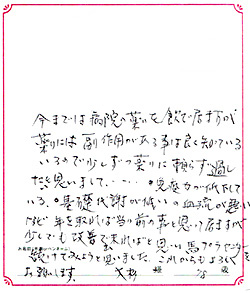 今までは病院の薬いを飲で居ますが
薬りには副作用がある事は良く知っている
いるので少しずつ薬りに頼らず過し
たいと思いまして.....免疫力が低下して
いる.基礎代謝が低いの血流が悪い
けど年を取れば当り前の事と思って居ますが
少しでも改善で来ればと思い馬プラセンタを
続けてみようと思いました、これからもよろしく
お願いします。 75歳